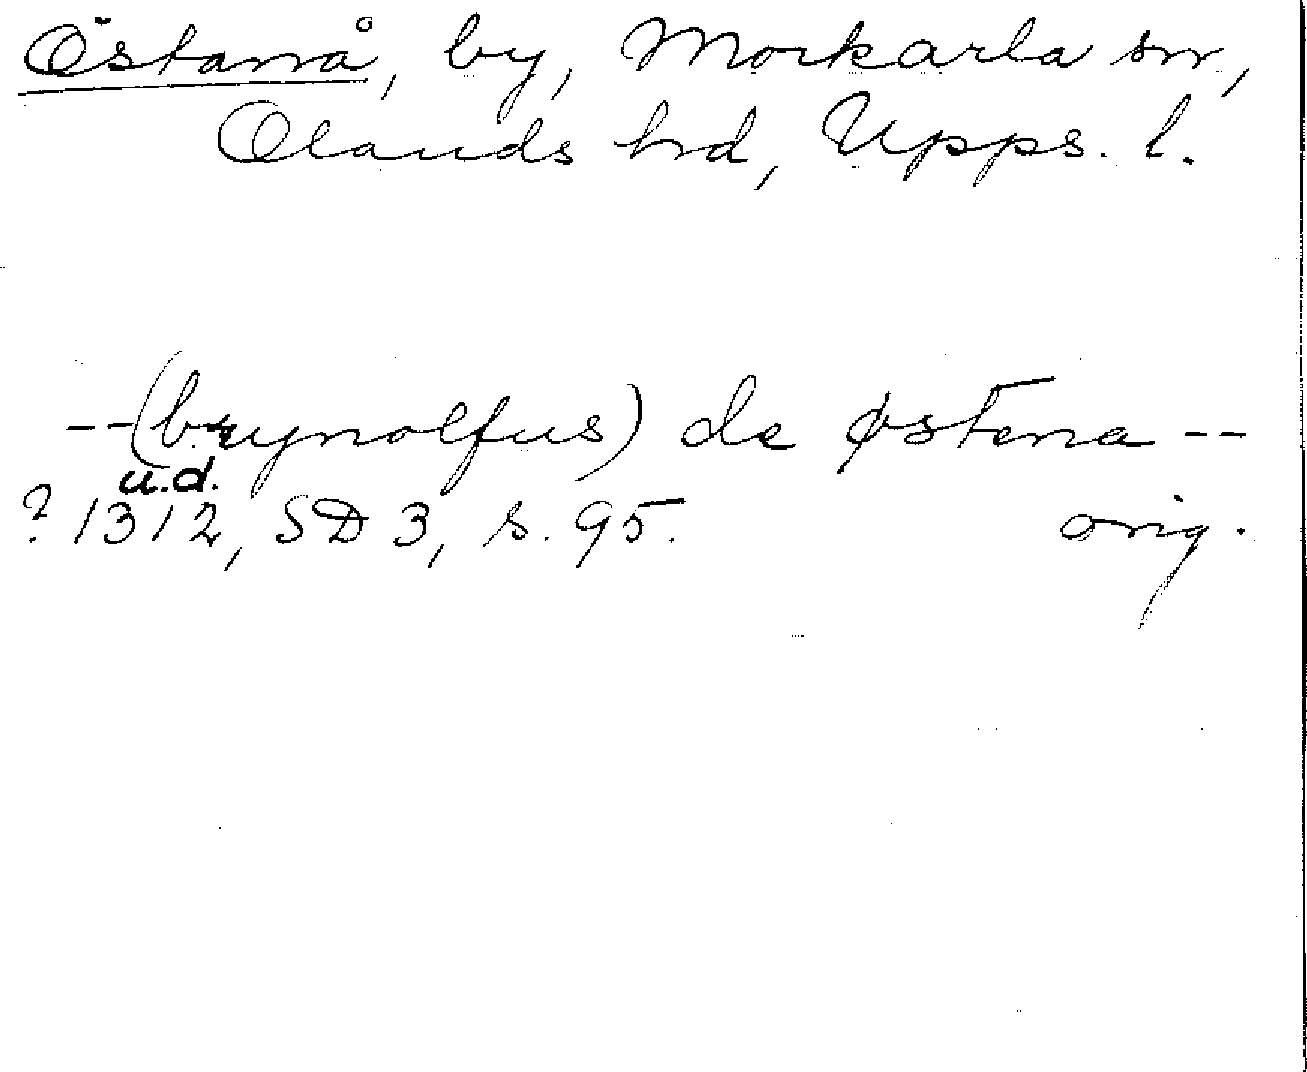 Östanå, by, Morkarla sn,
Olands hd, Upps. l.
--(brynolfus) de østena --
u.d.
? 1312, SD 3, s. 95. orig.